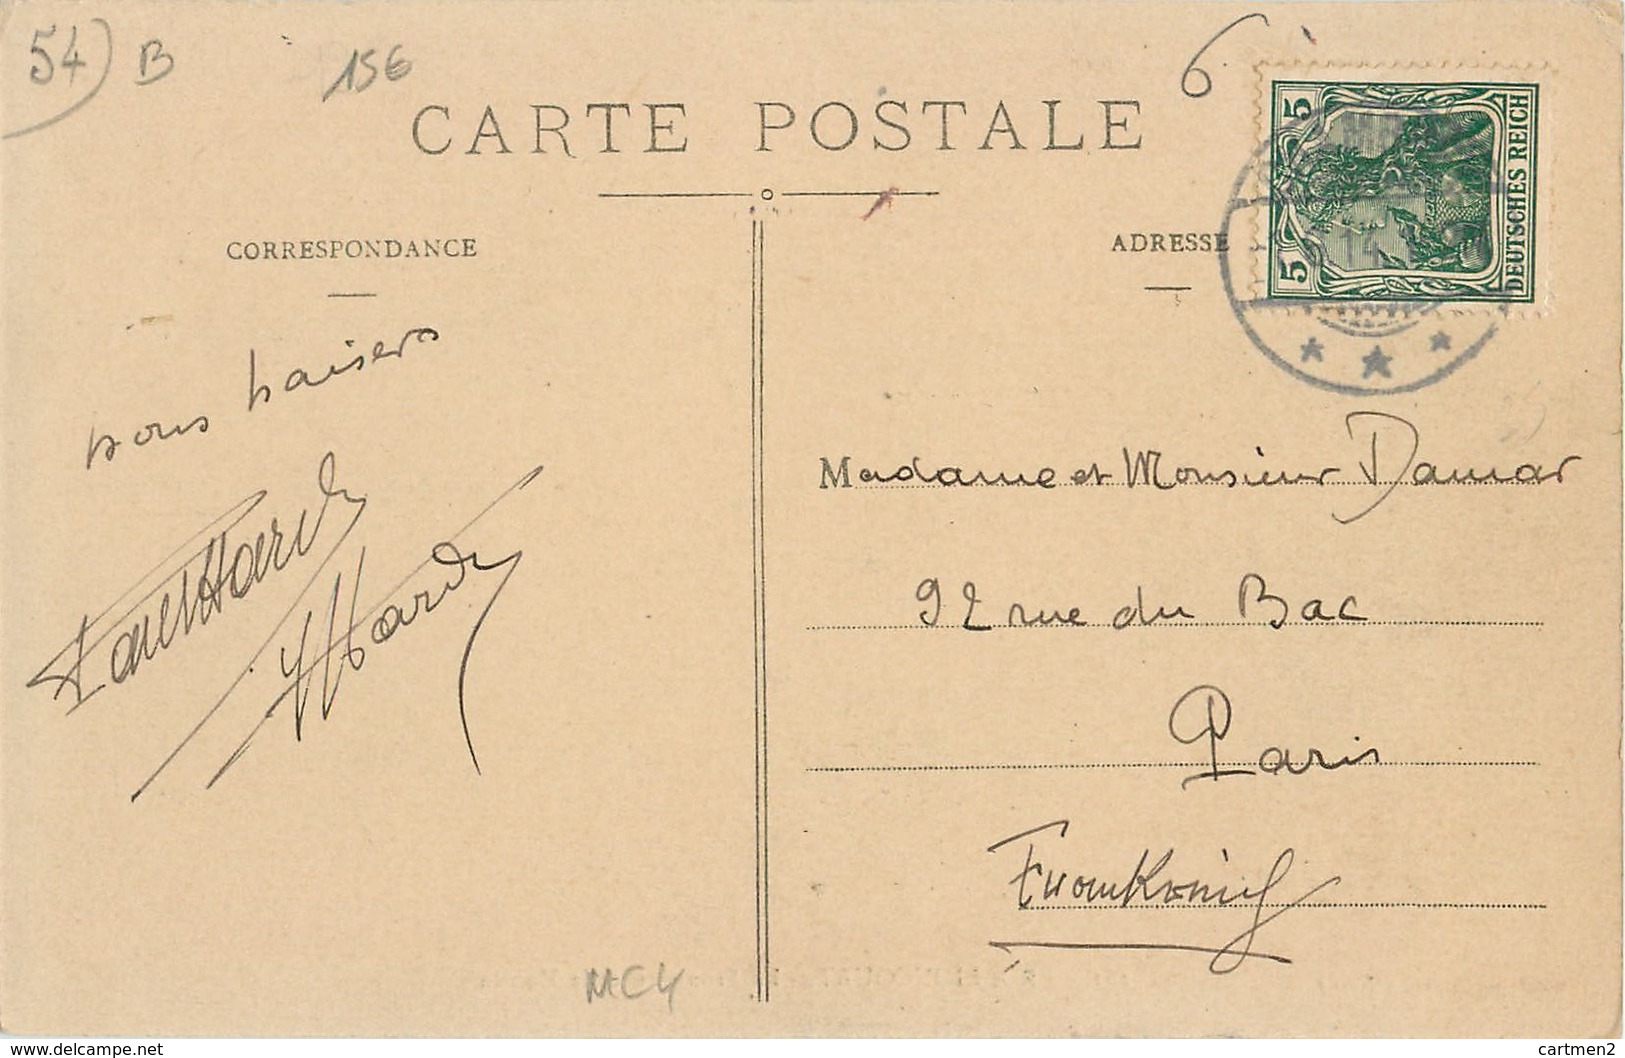 54) B
156
6
CARTE POSTALE
CORRESPONDANCE
ADRESSE
5
5
DEUTSCHES REICH
bons baisers
Hardy
Madame et Monsieur Damar
92 rue du Bac
Paris
Frankreich
MC4
www.delcampe.net
cartmen2